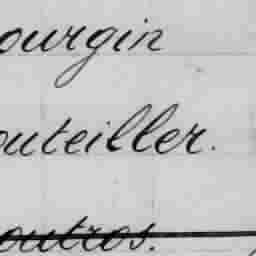 ourgin
outeiller.
outros.